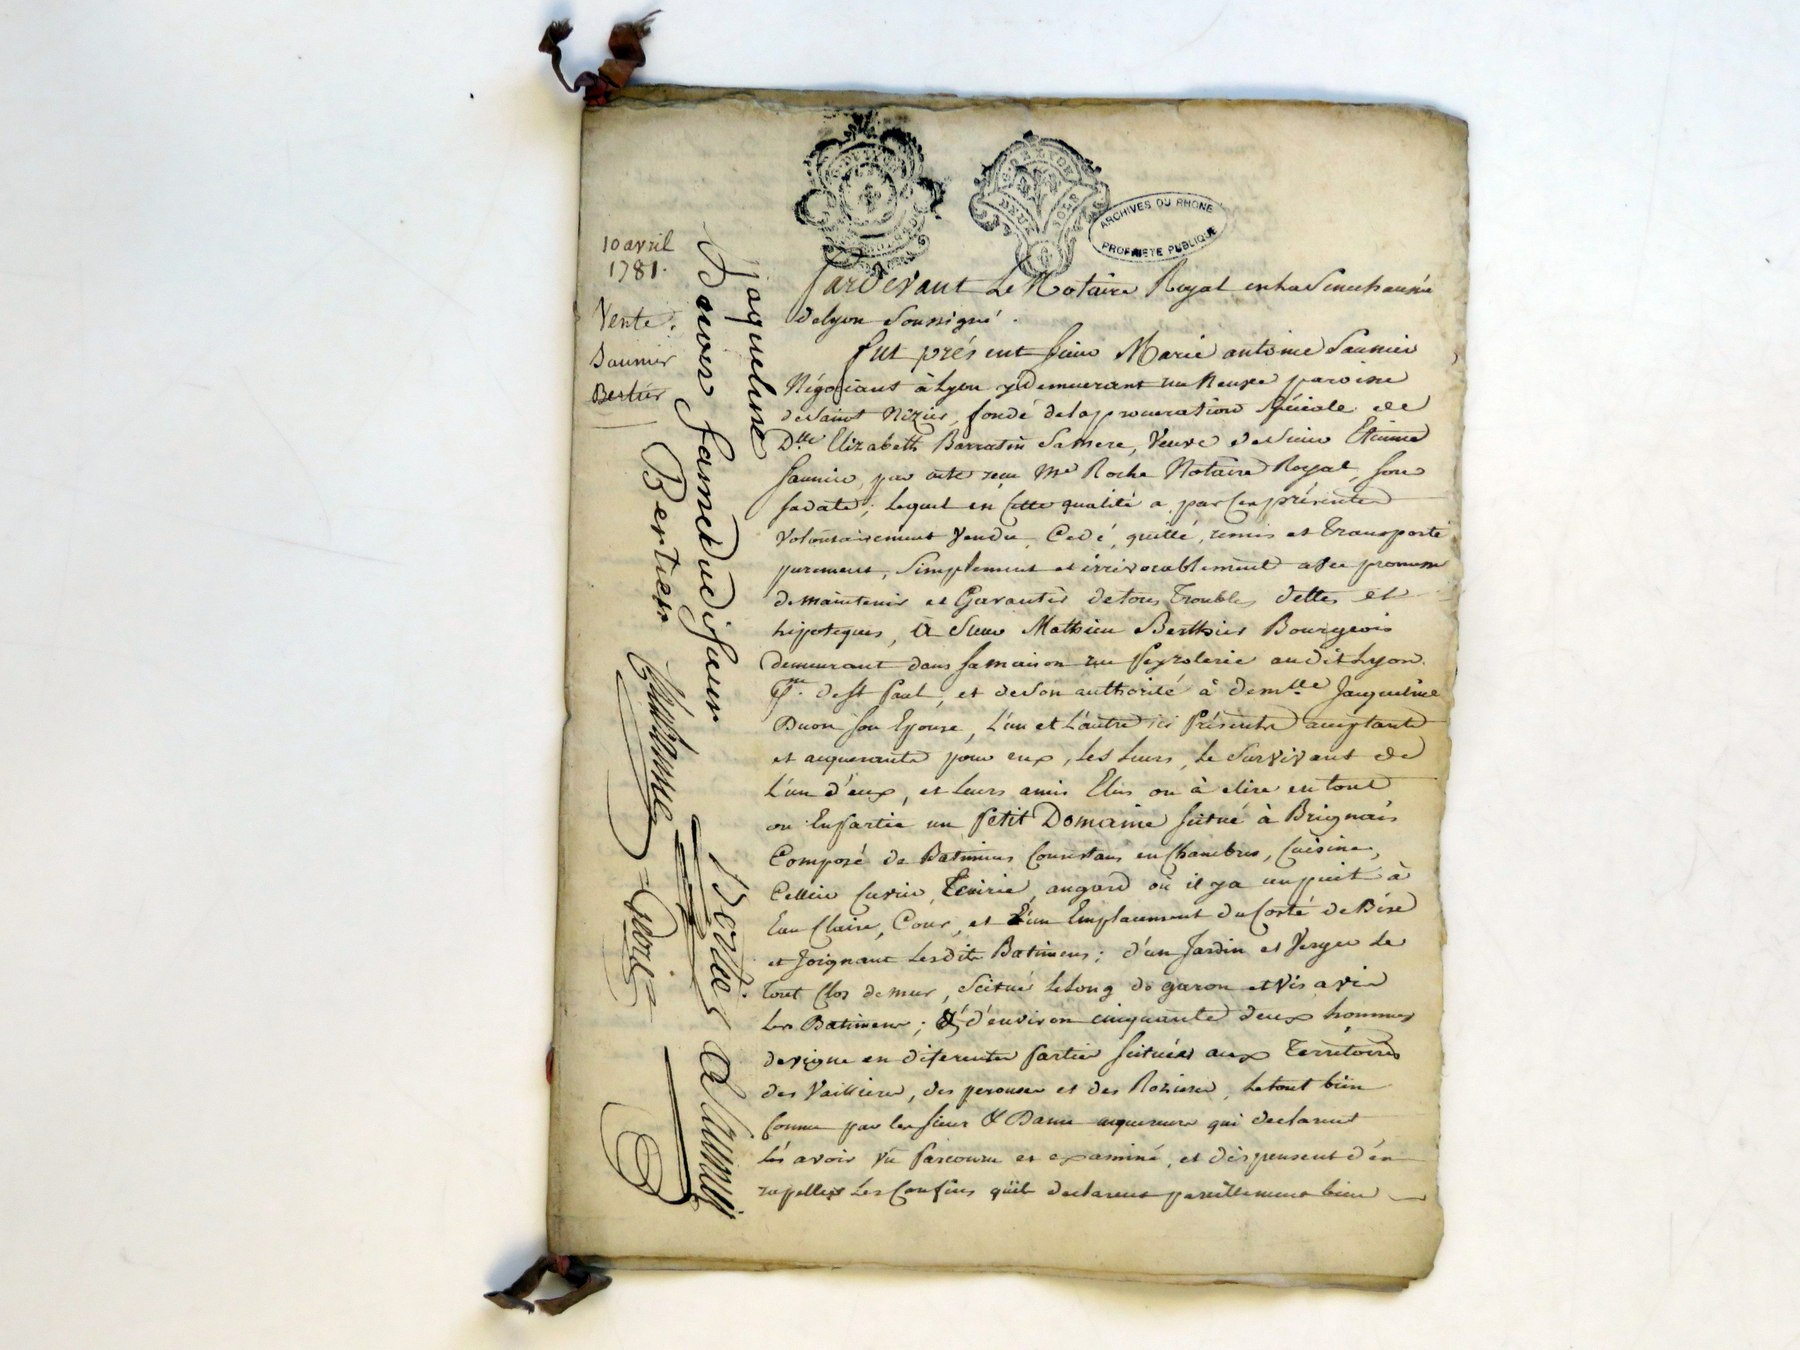 ARCHIVES DU RHONE
PROPRIETE PUBLIQUE
10 avril
1781.
Vente.
Saunier
Bertier
Jaqueline
Buon famedudisieur
Bertier
Pardevant Le Notaire Royal en la Senechaussée
de Lyon Soussigné.
fut présent sieur Marie antoine Saunier
Négociant à Lyon y demeurant rue Neuve paroisse
de Saint Nizier, fondé de la procuration spéciale de
D.lle Elizabeth Barratin Sa mere, Veuve de Sieur Etienne
Saunier, par acte reçu Me Roche Notaire Royal, sous
sa date; lequel en Cette qualité a par Ces présentes
Volontairement Vendu, Cedé, quitté, remis et transporté
purement, Simplement et irrévocablement avec promesse
de maintenir et Garantir de tous Troubles dettes et
hipoteques, à Sieur Mathieu Berthier Bourgeois
demeurant dans sa maison rue Peyrolerie audit Lyon
de St Paul, et de Son authorité à dem.lle Jaqueline
Buon son Epouse, L'un et L'autre ici Présents acceptants
et acquerants pour eux, Les Leurs, Le Survivant de
L'un d'eux, et Leurs amis Elus ou à elire en tout
ou En Partie un Petit Domaine scitué à Brignais
Composé de Batimens Consistans en Chambres, Cuisine,
Cellier Cuvier, Ecurie, angard où il y a un puit à
Eau Claire, Cour, et d'un Emplacement du Costé de Bise
et Joignant Lesdits Batimens; d'un Jardin et Verger Le
tout Clos de mur, Scitué Le Long de garon et Vis a vis
Les Batimens; & d'environ cinquante deux hommes
de vigne en diferentes Parties scituées aux Territoires
des Vallieres, des perouses et des Rozieres, Le tout bien
Connu par les sieur & Dame aquereurs qui declarent
Les avoir Vu Parcouru et examiné, et dispensent d'en
rapeller Les Confins qu'ils declarent pareillement bien